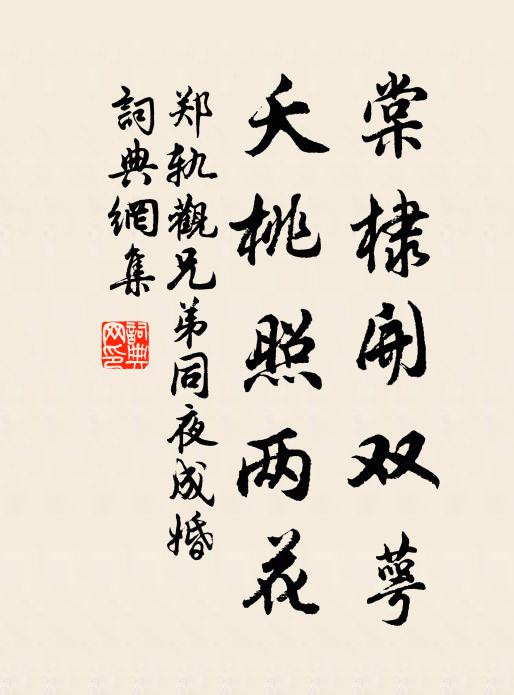 棠棣开双萼
夭桃照两花
郑轨觀兄弟同夜成婚
詞典網集
詞典网印